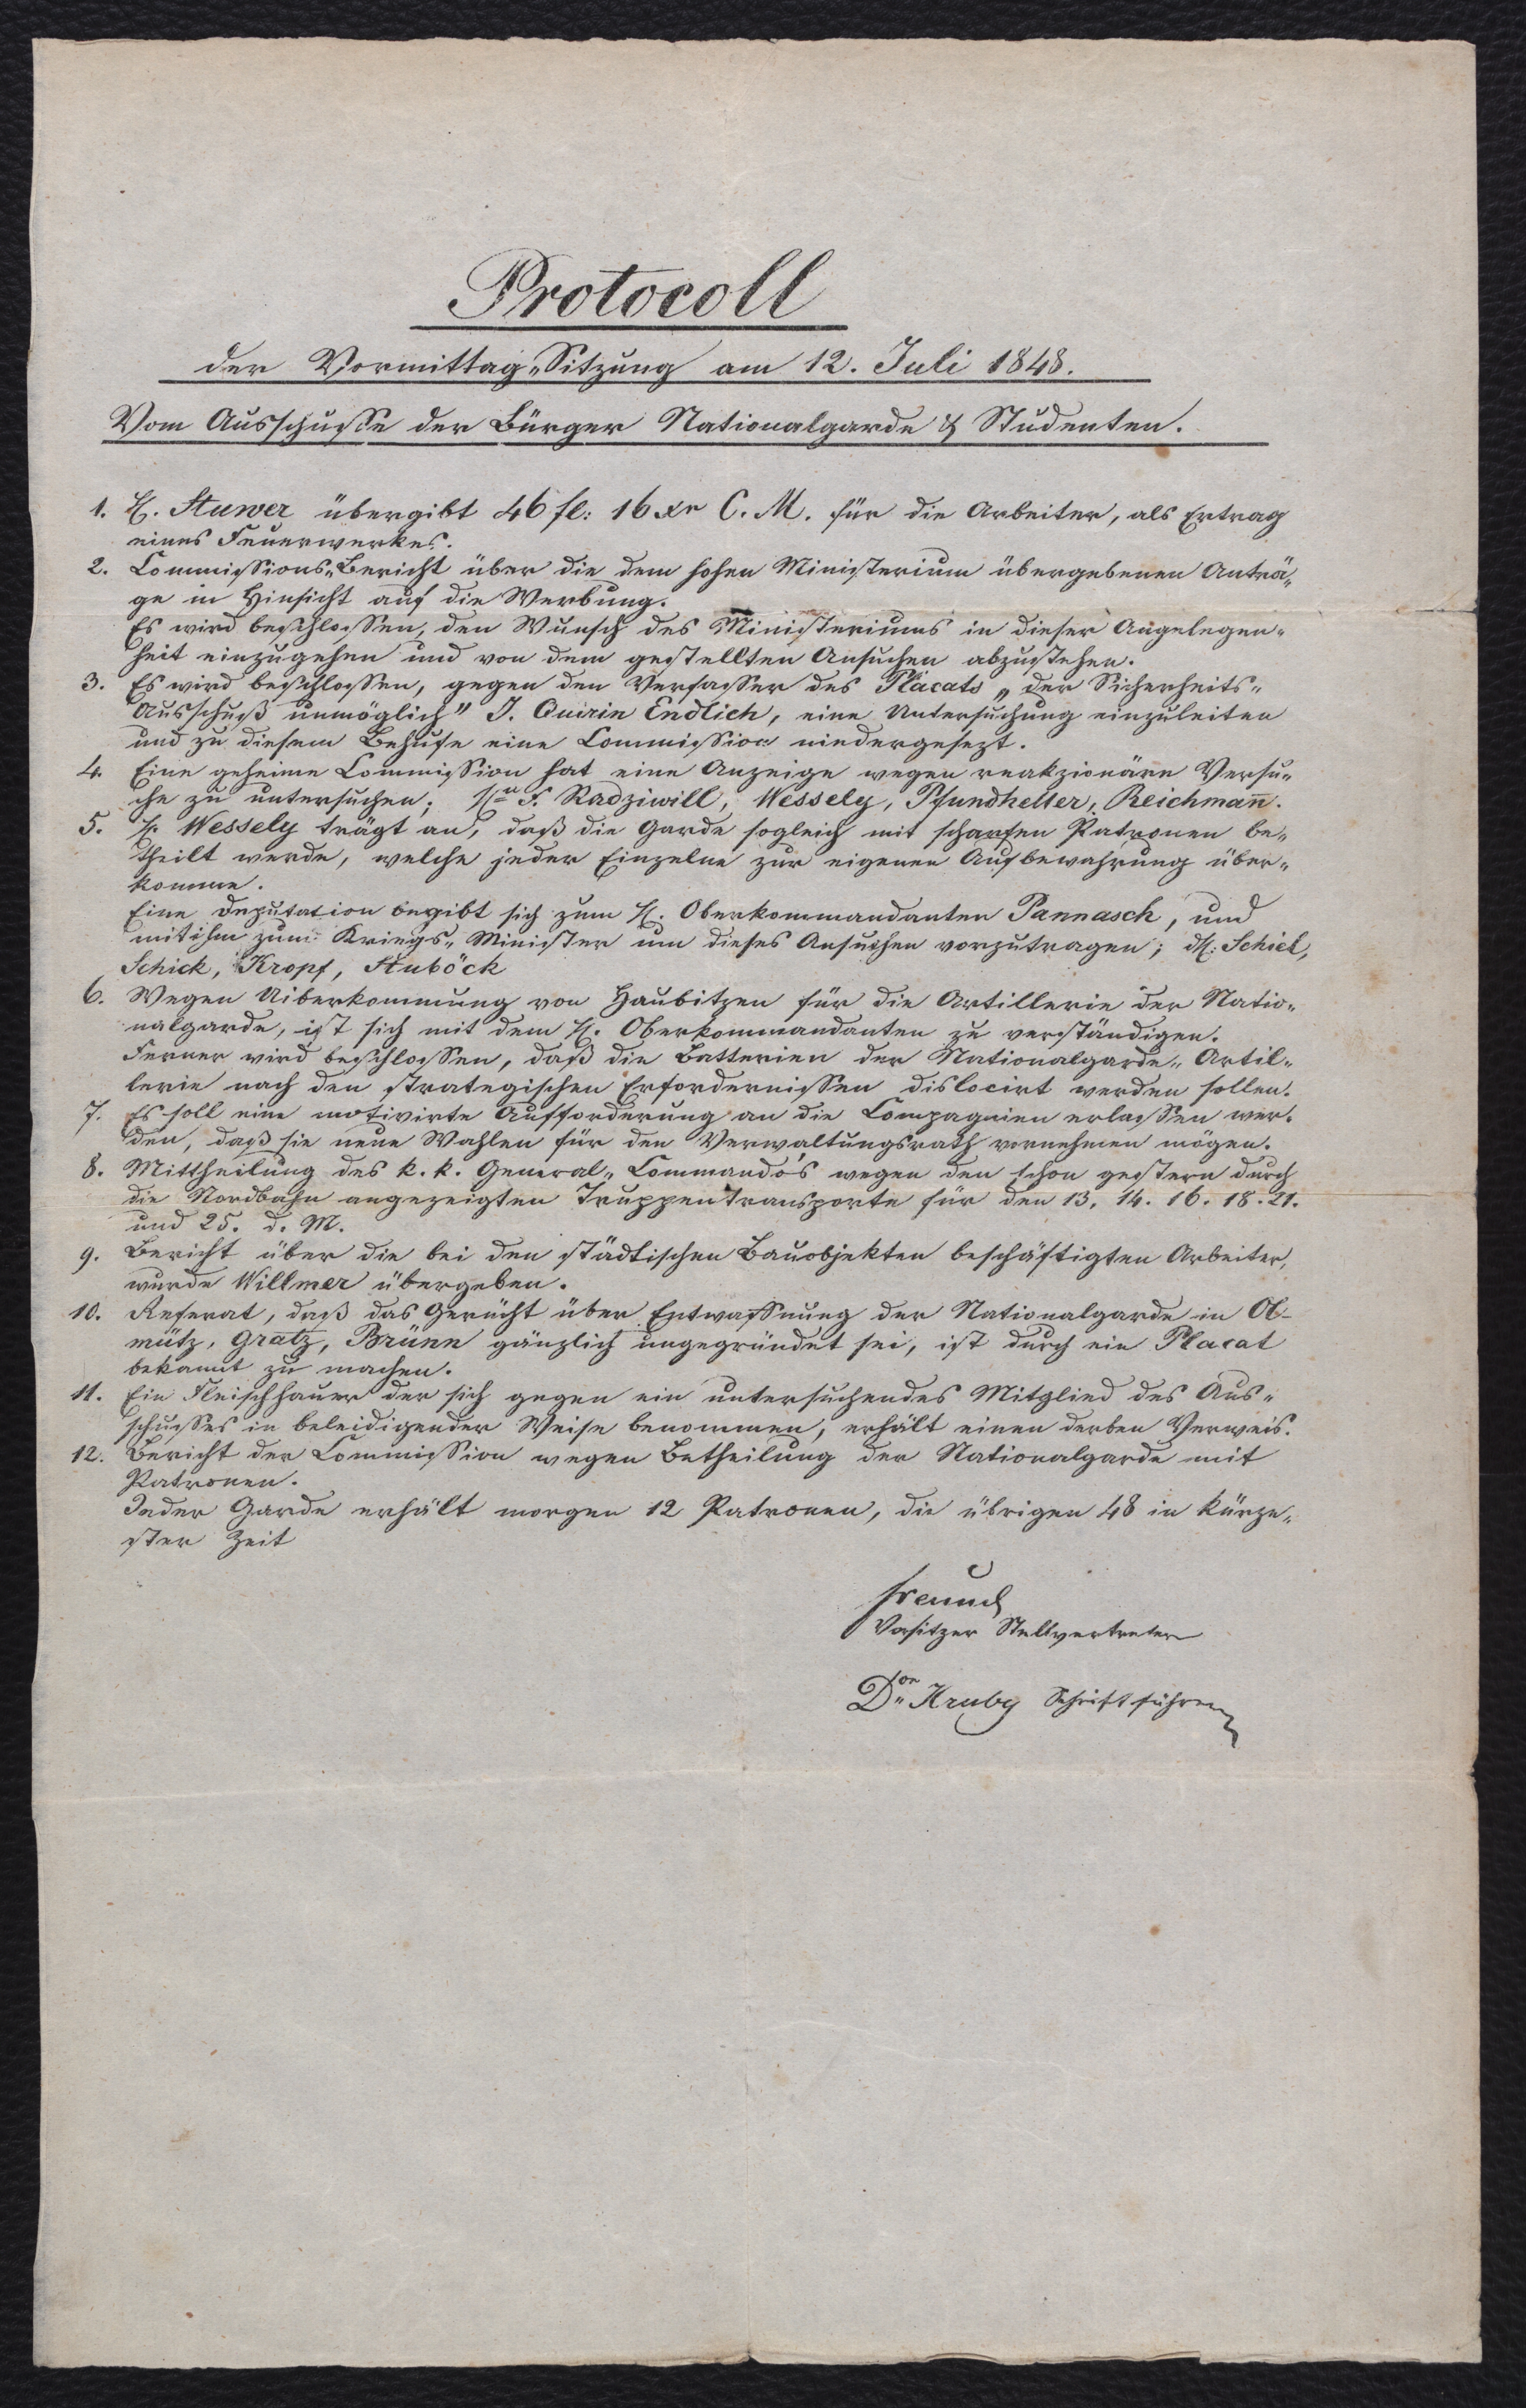 Protocoll
der Vormittag„Sitzung am 12. Juli 1848.
Vom Ausschuße der Bürger Nationalgarde & Studenten.
1. H. Stuwer übergibt 46 fl: 16 xr C. M. für die Arbeiter, als Ertrag
eines Feuerwerkes.
2. Commissions„Bericht über die dem hohen Ministerium übergebenen Anträ„
ge in Hinsicht auf die Werbung.
Es wird beschlossen, den Wunsch des Ministeriums in dieser Angelegen„
heit einzugehen und von dem gestellten Ansuchen abzustehen.
3. Es wird beschlossen, gegen den Verfasser des Placats „der Sicherheits„
Ausschuß unmöglich" J. Quirin Endlich, eine Untersuchung einzuleiten
und zu diesem Behufe eine Commission niedergesezt.
4. Eine geheime Commission hat eine Anzeige wegen reakzionäre Versu„
che zu untersuchen; F. Radziwill, Wessely, Pfundheller, Reichmañ.
5. H. Wessely trägt an, daß die Garde sogleich mit scharfen Patronen be„
theilt werde, welche jeder Einzelne zur eigenen Aufbewahrung über„
komme.
Eine Deputation begibt sich zum H. Oberkommandanten Pannasch, und
mit ihm zum Kriegs„Minister um dieses Ansuchen vorzutragen; dH: Schiel,
Schick, Kropf, Stuböck
6. Wegen Uiberkommung von Haubitzen für die Artillerie der Natio„
nalgarde, ist sich mit dem H. Oberkommandanten zu verständigen.
Ferner wird beschlossen, daß die Batterien der Nationalgarde„Artil„
lerie nach den strategischen Erfordernissen dislocirt werden sollen.
7. Es soll eine motivirte Aufforderung an die Compagnien erlassen wer„
den, daß sie neue Wahlen für den Verwaltungsrath vornehmen mögen.
8. Mittheilung des k. k. General„Commando's wegen den schon gestern durch
die Nordbahn angezeigten Truppentransporte für den 13. 14. 16. 18. 21.
und 25. d. M.
9. Bericht über die bei den städtischen Bauobjekten beschäftigten Arbeiter,
wurde Willmer übergeben.
10. Referat, daß das Gerücht über Entwaffnung der Nationalgarde in Ol-
mütz, Gratz, Brünn gänzlich ungegründet sei, ist durch ein Placat
bekannt zu machen.
11. Ein Fleischhauer der sich gegen ein untersuchendes Mitglied des Aus„
schusses in beleidigender Weise benommen, erhält einen derben Verweis.
12. Bericht der Commission wegen Betheilung der Nationalgarde mit
Patronen.
Jeder Garde erhält morgen 12 Patronen, die übrigen 48 in kürze„
ster Zeit
Freund
Vorsitzer Stellvertreter
Dor Hruby Schriftführer